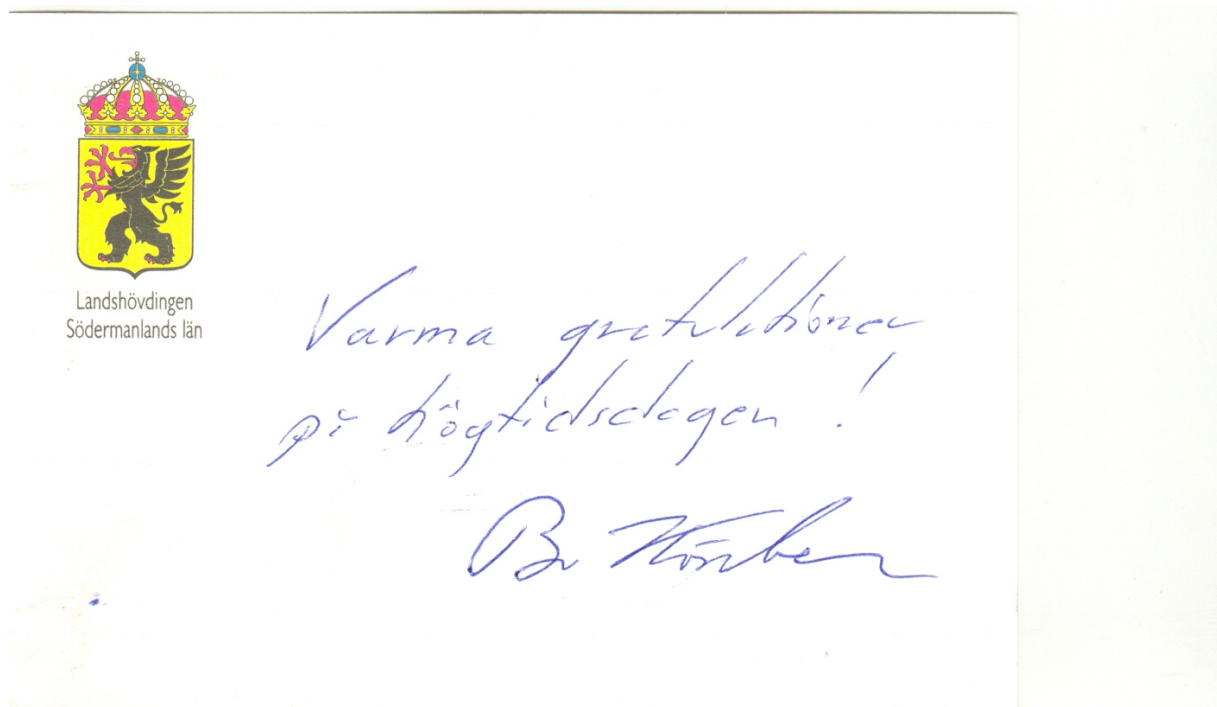 Landshövdingen
Södermanlands län
Varma gratulationer
på högtidsdagen!
Bo Könberg